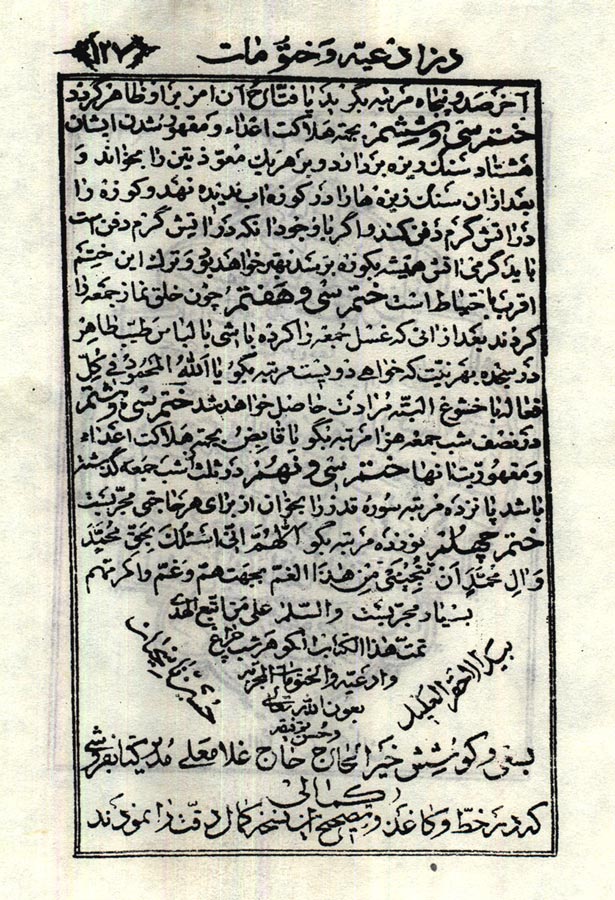 در ادعیه و ختومات ﴿۱۲۷﴾
آخر صد و پنجاه مرتبه بگوید یا فتاح آن امر بر او ظاهر گردد
ختم سی و ششم بجهة هلاکت اعداء و مقهور شدن ایشان
هشتاد سنک ریزه بردارد و بر هر یک معوذتین را بخواند و
بعد از ان سنک ریزه ها را در کوزه اب ندیده نهد و کوزه را
در اتش گرم دفن کند و اگر با وجود انکه در اتش گرم دفن است
باید گرمی اتش همیشه بکوزه برسد بهتر خواهد بود و ترک این ختم
اقرب باحتیاط است ختم سی و هفتم چون خلق نماز جمعه را
کردند بعد از انی که غسل جمعه را کرده باشی با لباس طیب طاهر
در سجده بهر نیت که خواهی دویست مرتبه بگو یا الله المحمود فی کل
فعاله با خشوع البته مرادت حاصل خواهد شد ختم سی و هشتم
در نصف شب جمعه هزار مرتبه بگو یا قابض بجهة هلاکت اعداء
و مقهوریت انها ختم سی و نهم در ثلث شب جمعه گذشته
باشد پانزده مرتبه سوره قدر را بخوان از برای هر حاجتی مجربست
ختم چهلم نوزده مرتبه بگو اللهم انی اسئلک بحق محمد
و ال محمد ان تنجینی من هذا الغم بجهت هم و غم و اکر بهم
بسیار مجربست والسلم علی من اتبع الهدی
تمت هذا الکتاب
وادعیه والختومات المجربه
بعون الله تعالی
وحسن توفیقه
بید الاحقر العلیل
بسعی و کوشش خیر الحاج حاج غلامعلی مدیر کتابفروشی
کمالی
که در خط و کاغذ و تصحیح این نسخه کمال دقت را نمودند